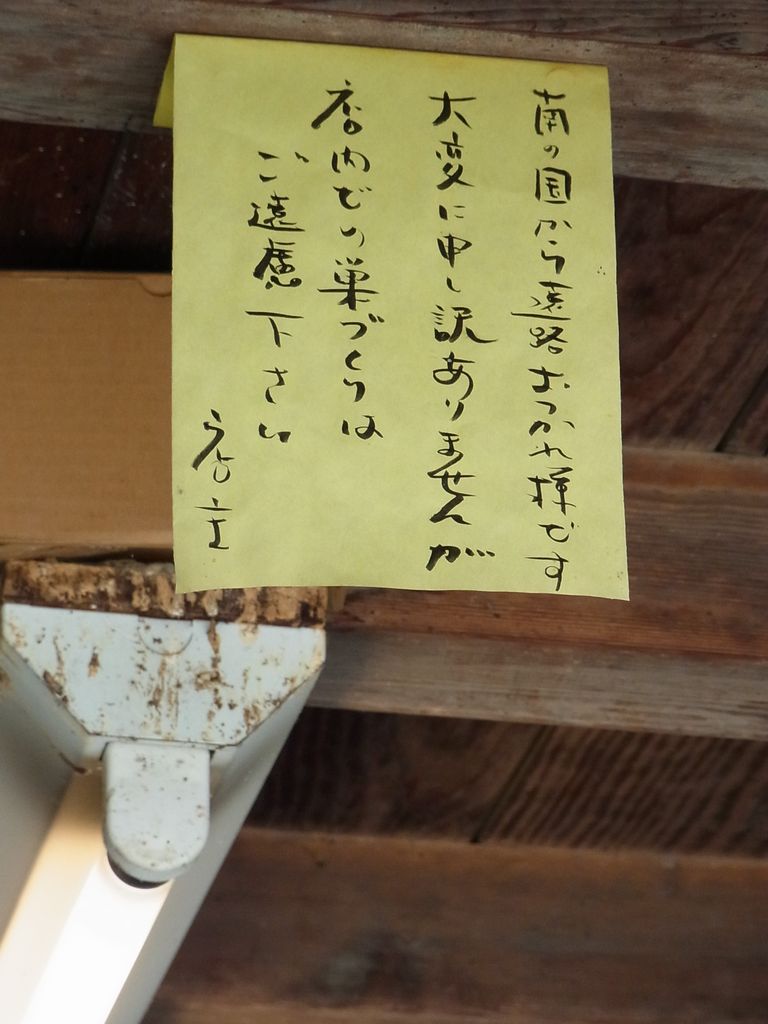 南の国から遠路おつかれ様です
大変に申し訳ありませんが
店内での巣づくりは
ご遠慮下さい
店主